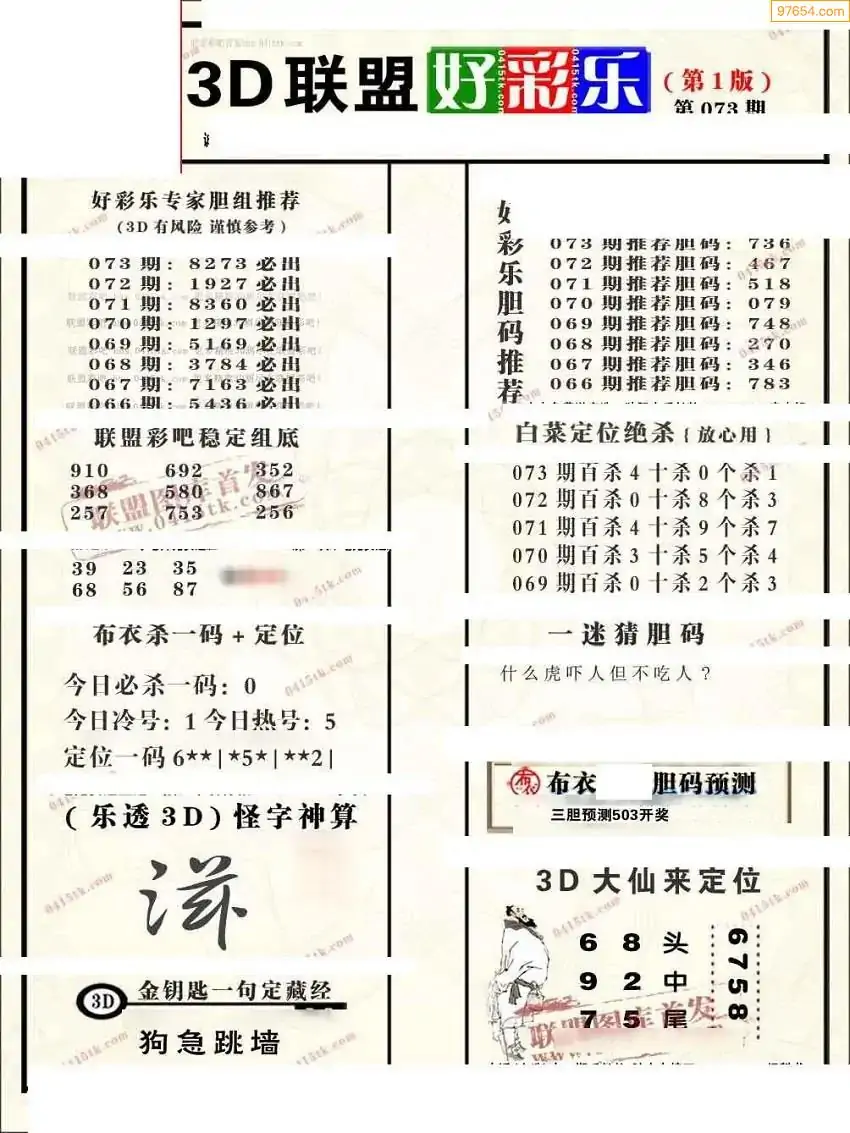 97654.com
3D联盟好彩乐(第1版)
第073期
好彩乐专家胆组推荐
(3D有风险 谨慎参考)
073期: 8273必出
072期: 1927必出
071期: 8360必出
070期: 1297必出
069期: 5169必出
068期: 3784必出
067期: 7163必出
066期: 5436必出
联盟彩吧稳定组底
910 692 352
368 580 867
257 753 256
39 23 35
68 56 87
布衣杀一码+定位
今日必杀一码: 0
今日冷号: 1 今日热号: 5
定位一码6**|*5*|**2|
(乐透3D)怪字神算
滋
3D 金钥匙一句定藏经
狗急跳墙
好彩乐胆码推荐
073期推荐胆码: 736
072期推荐胆码: 467
071期推荐胆码: 518
070期推荐胆码: 079
069期推荐胆码: 748
068期推荐胆码: 270
067期推荐胆码: 346
066期推荐胆码: 783
白菜定位绝杀{放心用}
073期百杀4十杀0个杀1
072期百杀0十杀8个杀3
071期百杀4十杀9个杀7
070期百杀3十杀5个杀4
069期百杀0十杀2个杀3
一迷猜胆码
什么虎吓人但不吃人?
布衣 胆码预测
三胆预测503开奖
3D大仙来定位
6 8 头
9 2 中
7 5 尾
6758
联盟图库首发
www.0415tk.com
0415tk.com